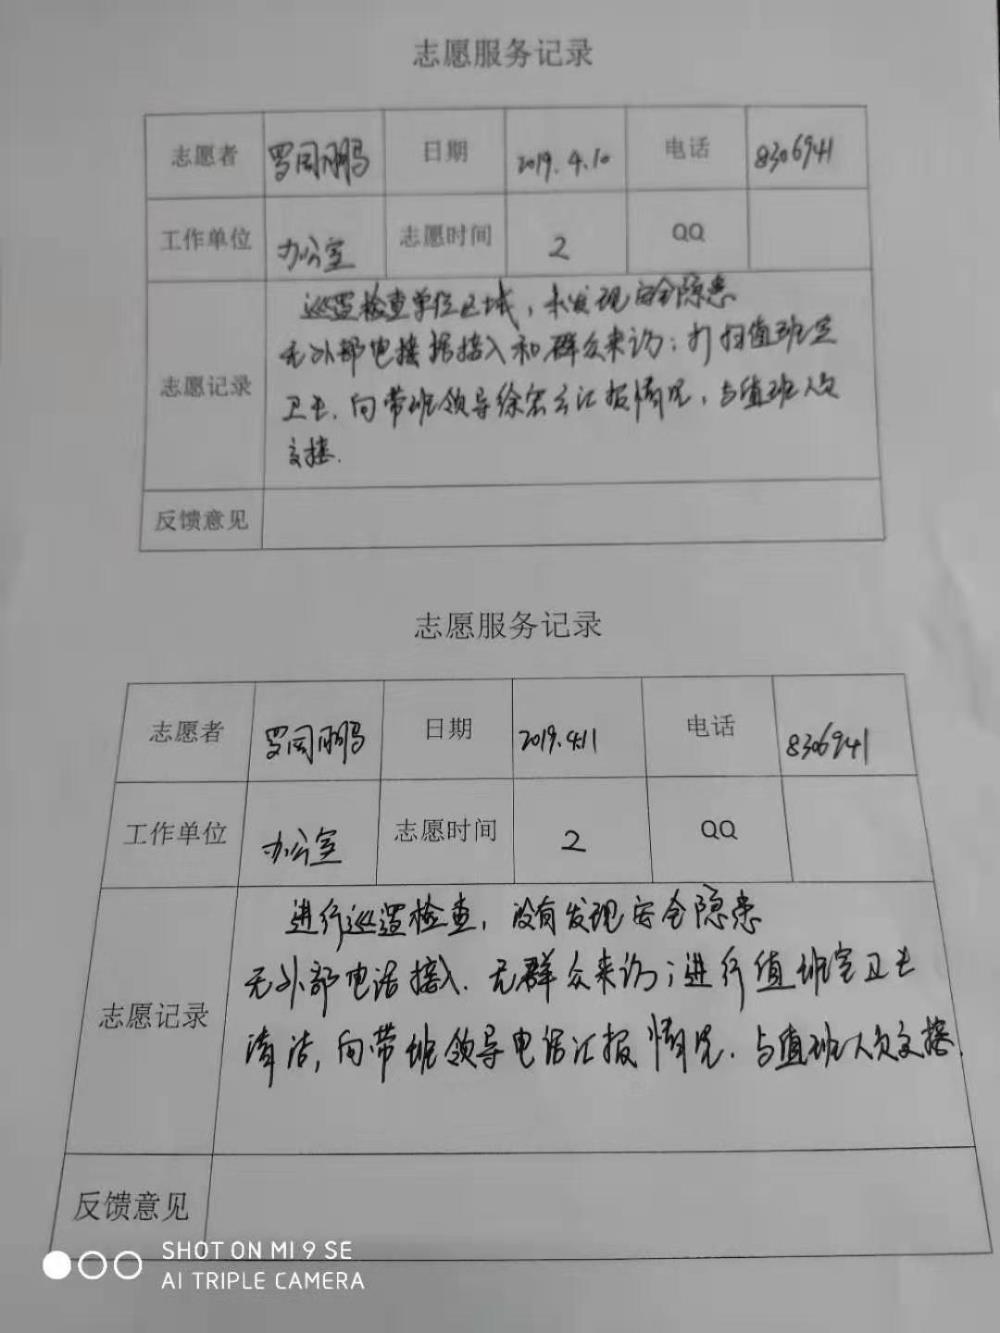 志愿服务记录
志愿者 罗同鹏 日期 2019.4.10 电话 8306941
工作单位 办公室 志愿时间 2 QQ
巡逻检查单位区域，未发现安全隐患
无外部电接 接入和群众来访；打扫值班室
志愿记录
卫生，向带班领导徐宏云汇报情况，与值班人员
交接.
反馈意见
志愿服务记录
志愿者 罗同鹏 日期 2019.4.11 电话 8306941
工作单位 办公室 志愿时间 2 QQ
进行巡逻检查，没有发现安全隐患
无外部电话接入、无群众来访；进行值班室卫生
志愿记录
清洁，向带班领导电话汇报情况、与值班人员交接.
反馈意见
SHOT ON MI 9 SE
AI TRIPLE CAMERA